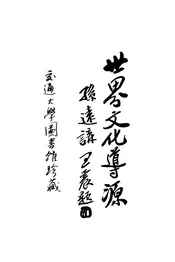 世界文化導源
孫遠謨 王震題
交通大學圖書館珍藏